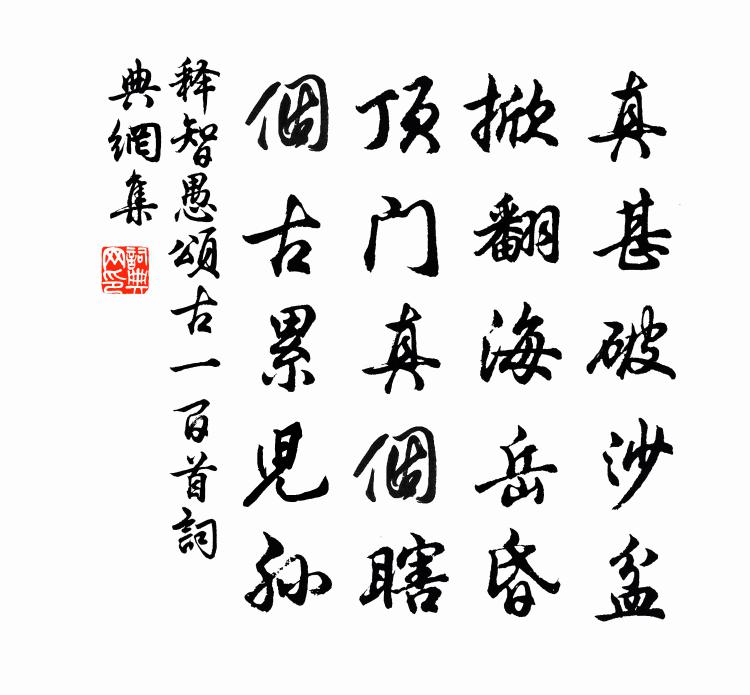 真甚破沙盆
掀翻海岳昏
頂门真個瞎
個古累児孙
释智愚頌古一百首詞
典網集
詞典网印